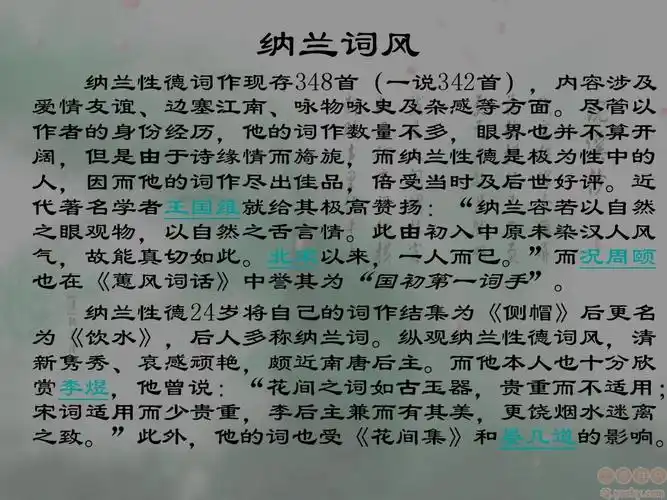 纳兰词风
纳兰性德词作现存348首（一说342首），内容涉及
爱情友谊、边塞江南、咏物咏史及杂感等方面。尽管以
作者的身份经历，他的词作数量不多，眼界也并不算开
阔，但是由于诗缘情而旖旎，而纳兰性德是极为性中的
人，因而他的词作尽出佳品，倍受当时及后世好评。近
代著名学者王国维就给其极高赞扬：“纳兰容若以自然
之眼观物，以自然之舌言情。此由初入中原未染汉人风
气，故能真切如此。北宋以来，一人而已。”而况周颐
也在《蕙风词话》中誉其为“国初第一词手”。
纳兰性德24岁将自己的词作结集为《侧帽》后更名
为《饮水》，后人多称纳兰词。纵观纳兰性德词风，清
新隽秀、哀感顽艳，颇近南唐后主。而他本人也十分欣
赏李煜，他曾说：“花间之词如古玉器，贵重而不适用；
宋词适用而少贵重，李后主兼而有其美，更饶烟水迷离
之致。”此外，他的词也受《花间集》和晏几道的影响。